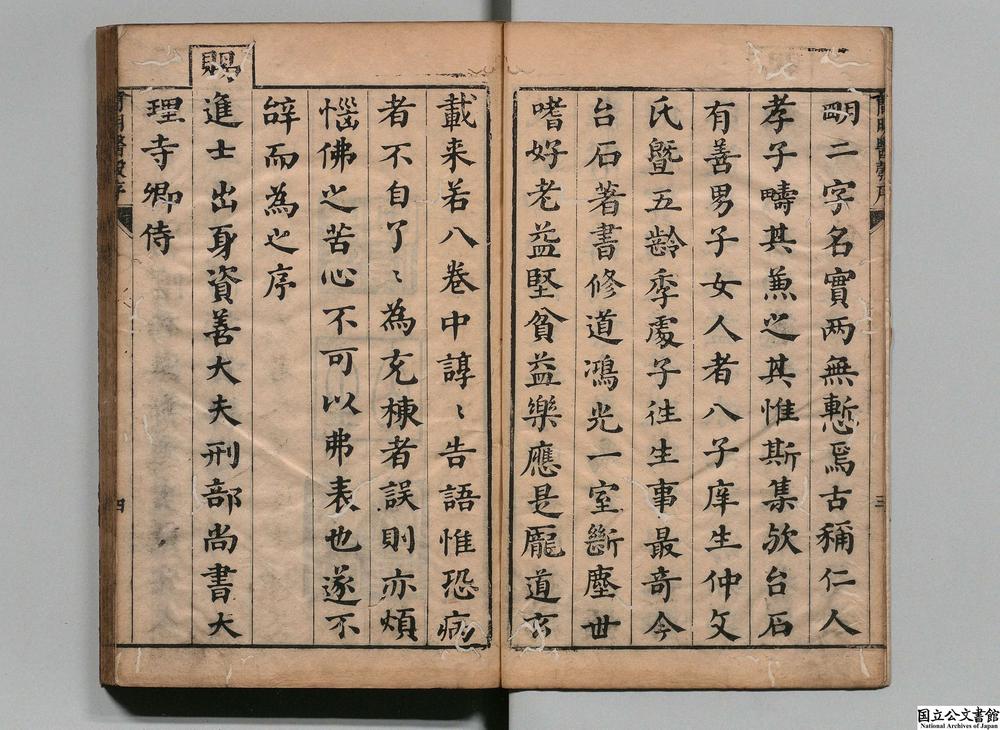 朙二字名實两無慙焉古稱仁人
孝子疇其兼之其惟斯集欤台石
有善男子女人者八子庠生仲文
氏暨五齡季處子徃生事最奇今
台石著書修道鴻光一室斷塵世
嗜好老益堅貧益樂應是龐道玄
三
載来若八卷中諄〻告語惟恐病
者不自了〻為充棟者誤則亦煩
惱佛之苦心不可以弗表也遂不
辝而為之序
賜進士出身資善大夫刑部尚書大
理寺卿侍
四
国立公文書館
National Archives of Japan